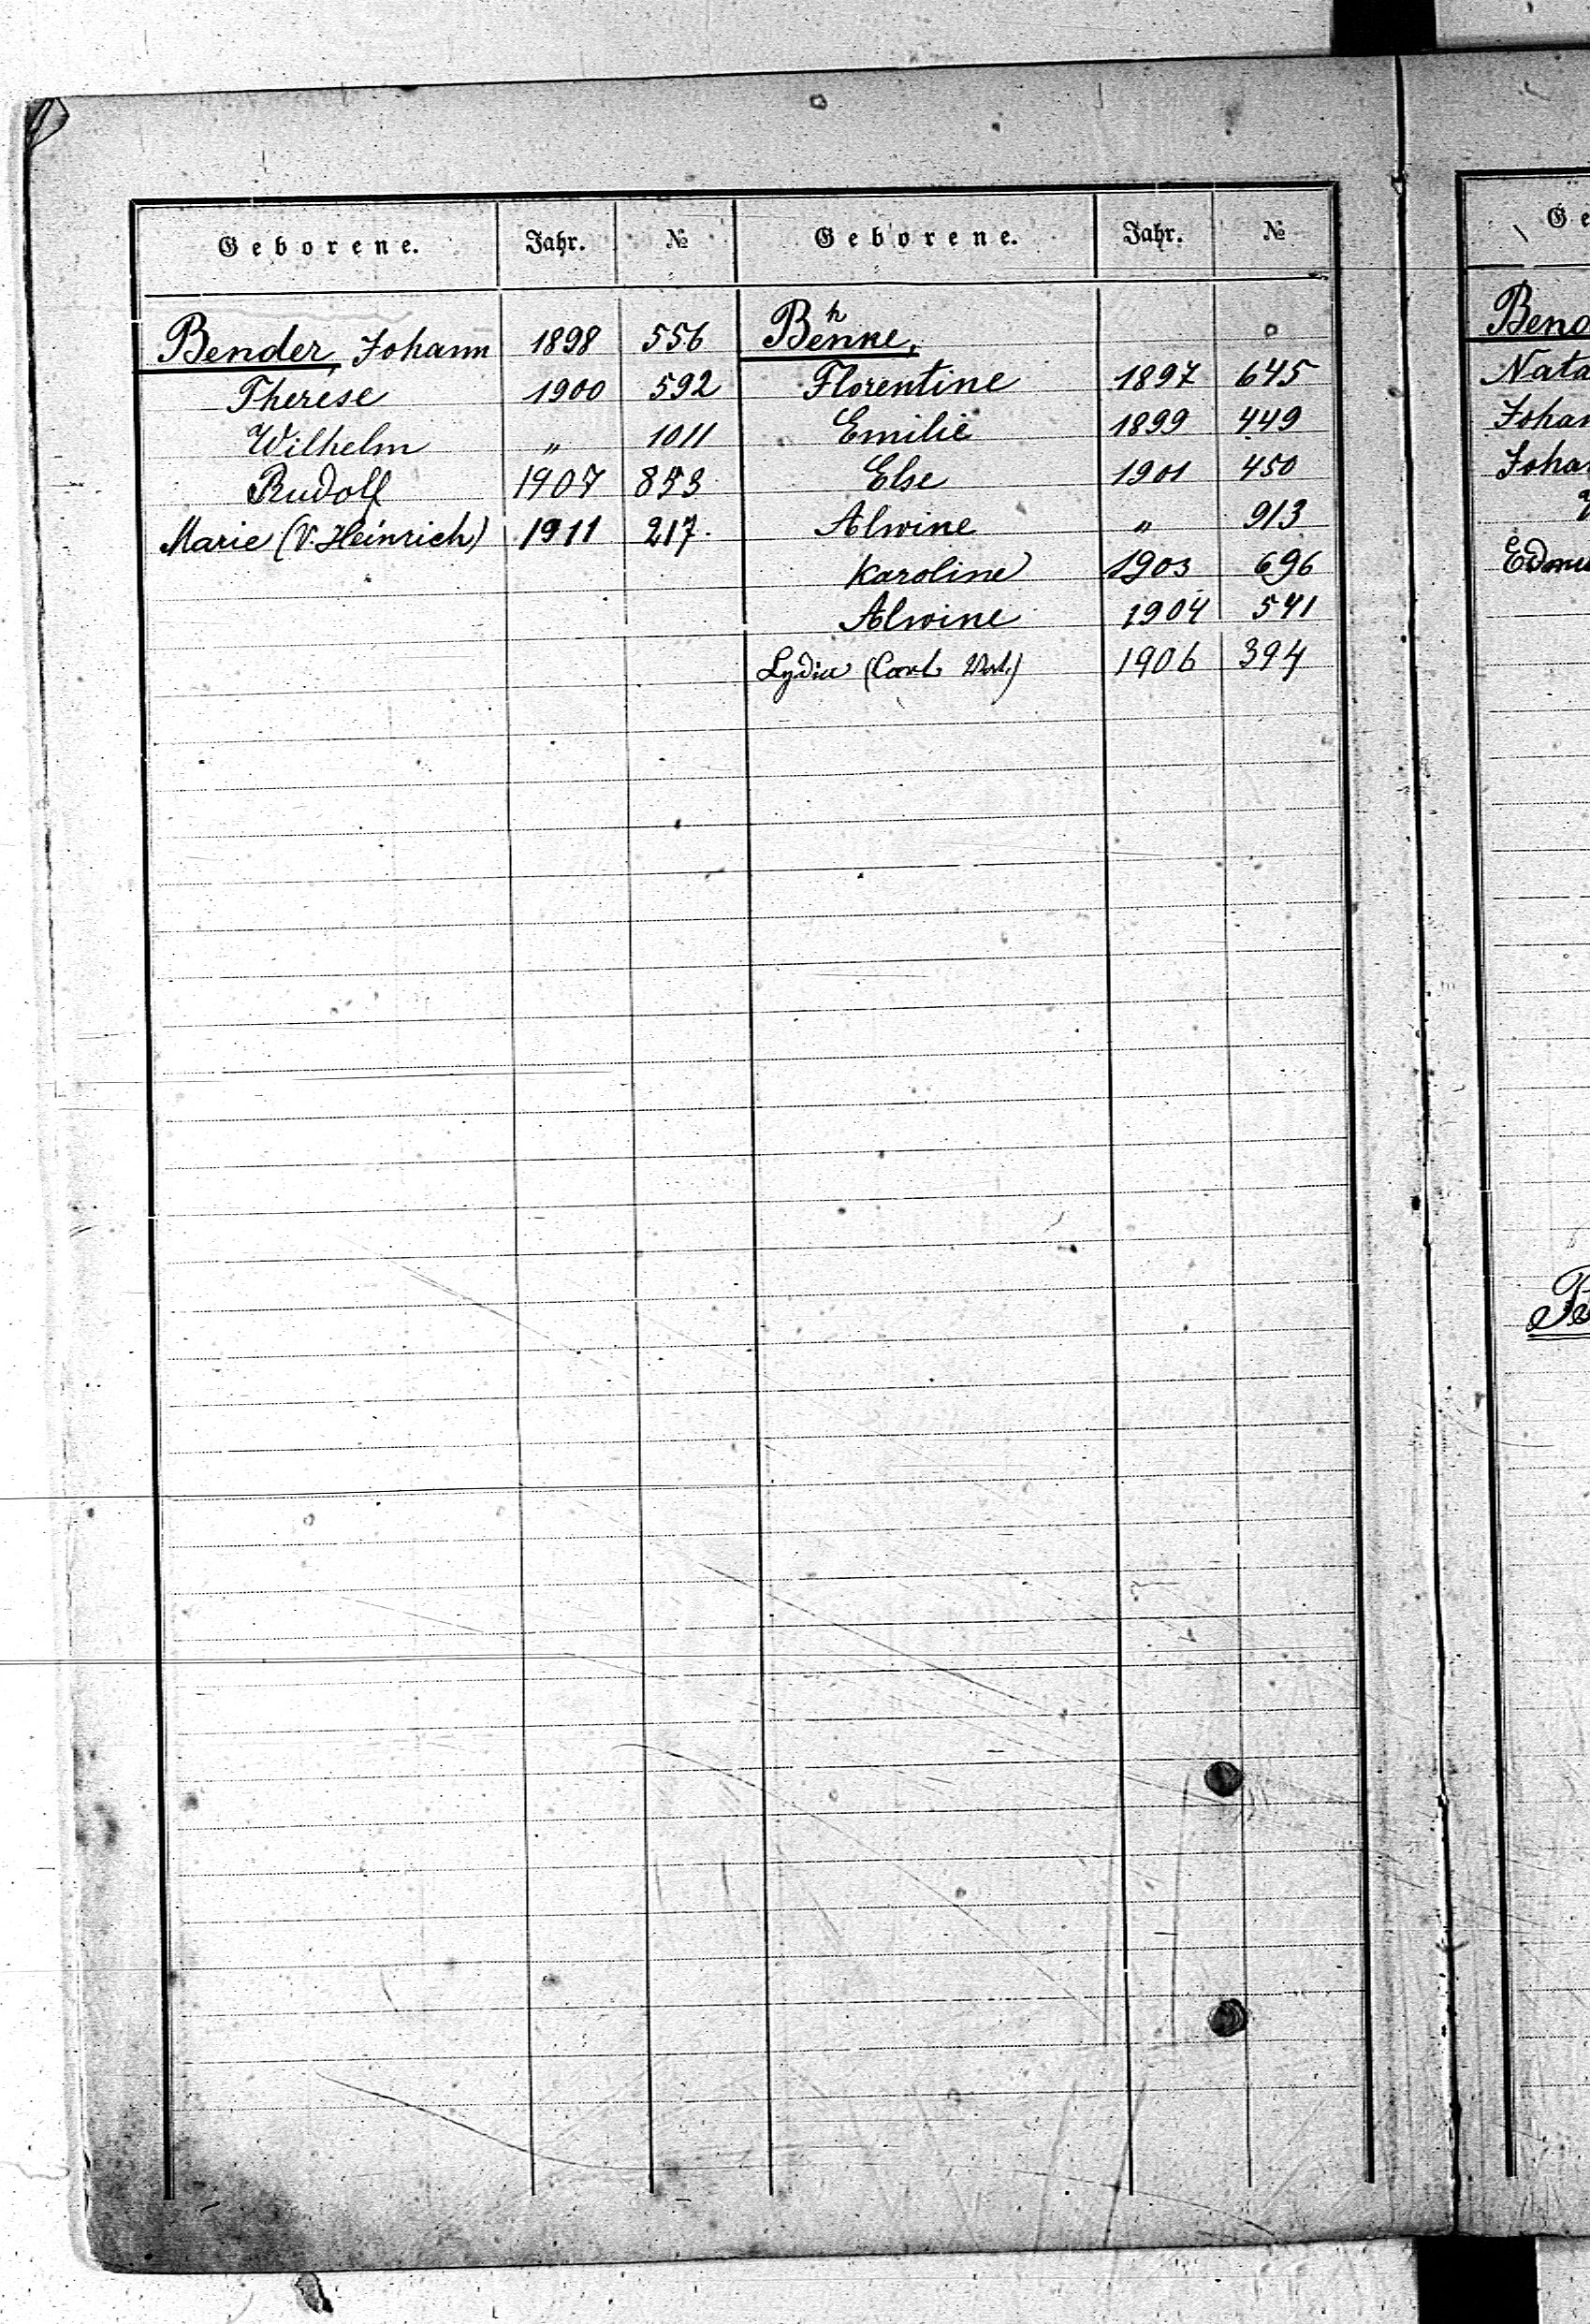 Geborene. Jahr. № Geborene. Jahr. №
Bender, Johann 1898 556
Therese 1900 592
Wilhelm „ 1011
Rudolf 1907 853
Marie (V. Heinrich) 1911 217.
Behnke,
Florentine 1897 645
Emilie 1899 449
Else 1901 450
Alwine „ 913
Karoline 1903 696
Alwine 1904 541
Lydia (Carl 1906 394
Ge
Bend
Nata
Johan
Johan
Edmu